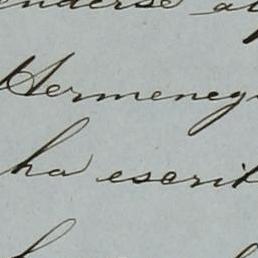 enderse a
Hermeneg
ha escrit